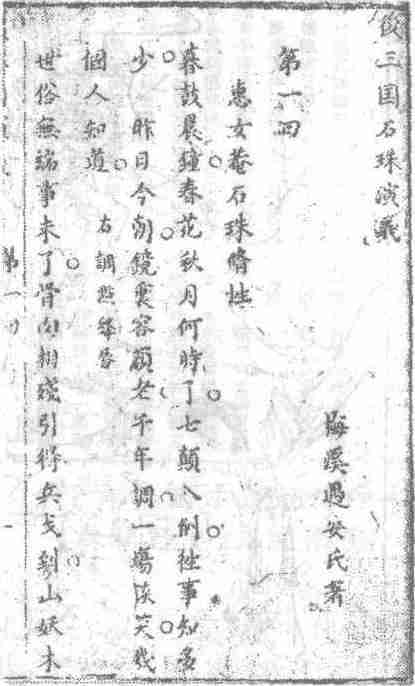 後三国石珠演義
梅溪遇安氏著
第一回
惠女菴石珠脩性
暮鼓晨鐘春花秋月何時了七顛八倒往事知多
少昨日今朝鏡裏容顏老千年調一場談笑幾
個人知道　右調點絳唇
世俗無端事来了骨肉相殘引得兵戈到山妖木
第一回